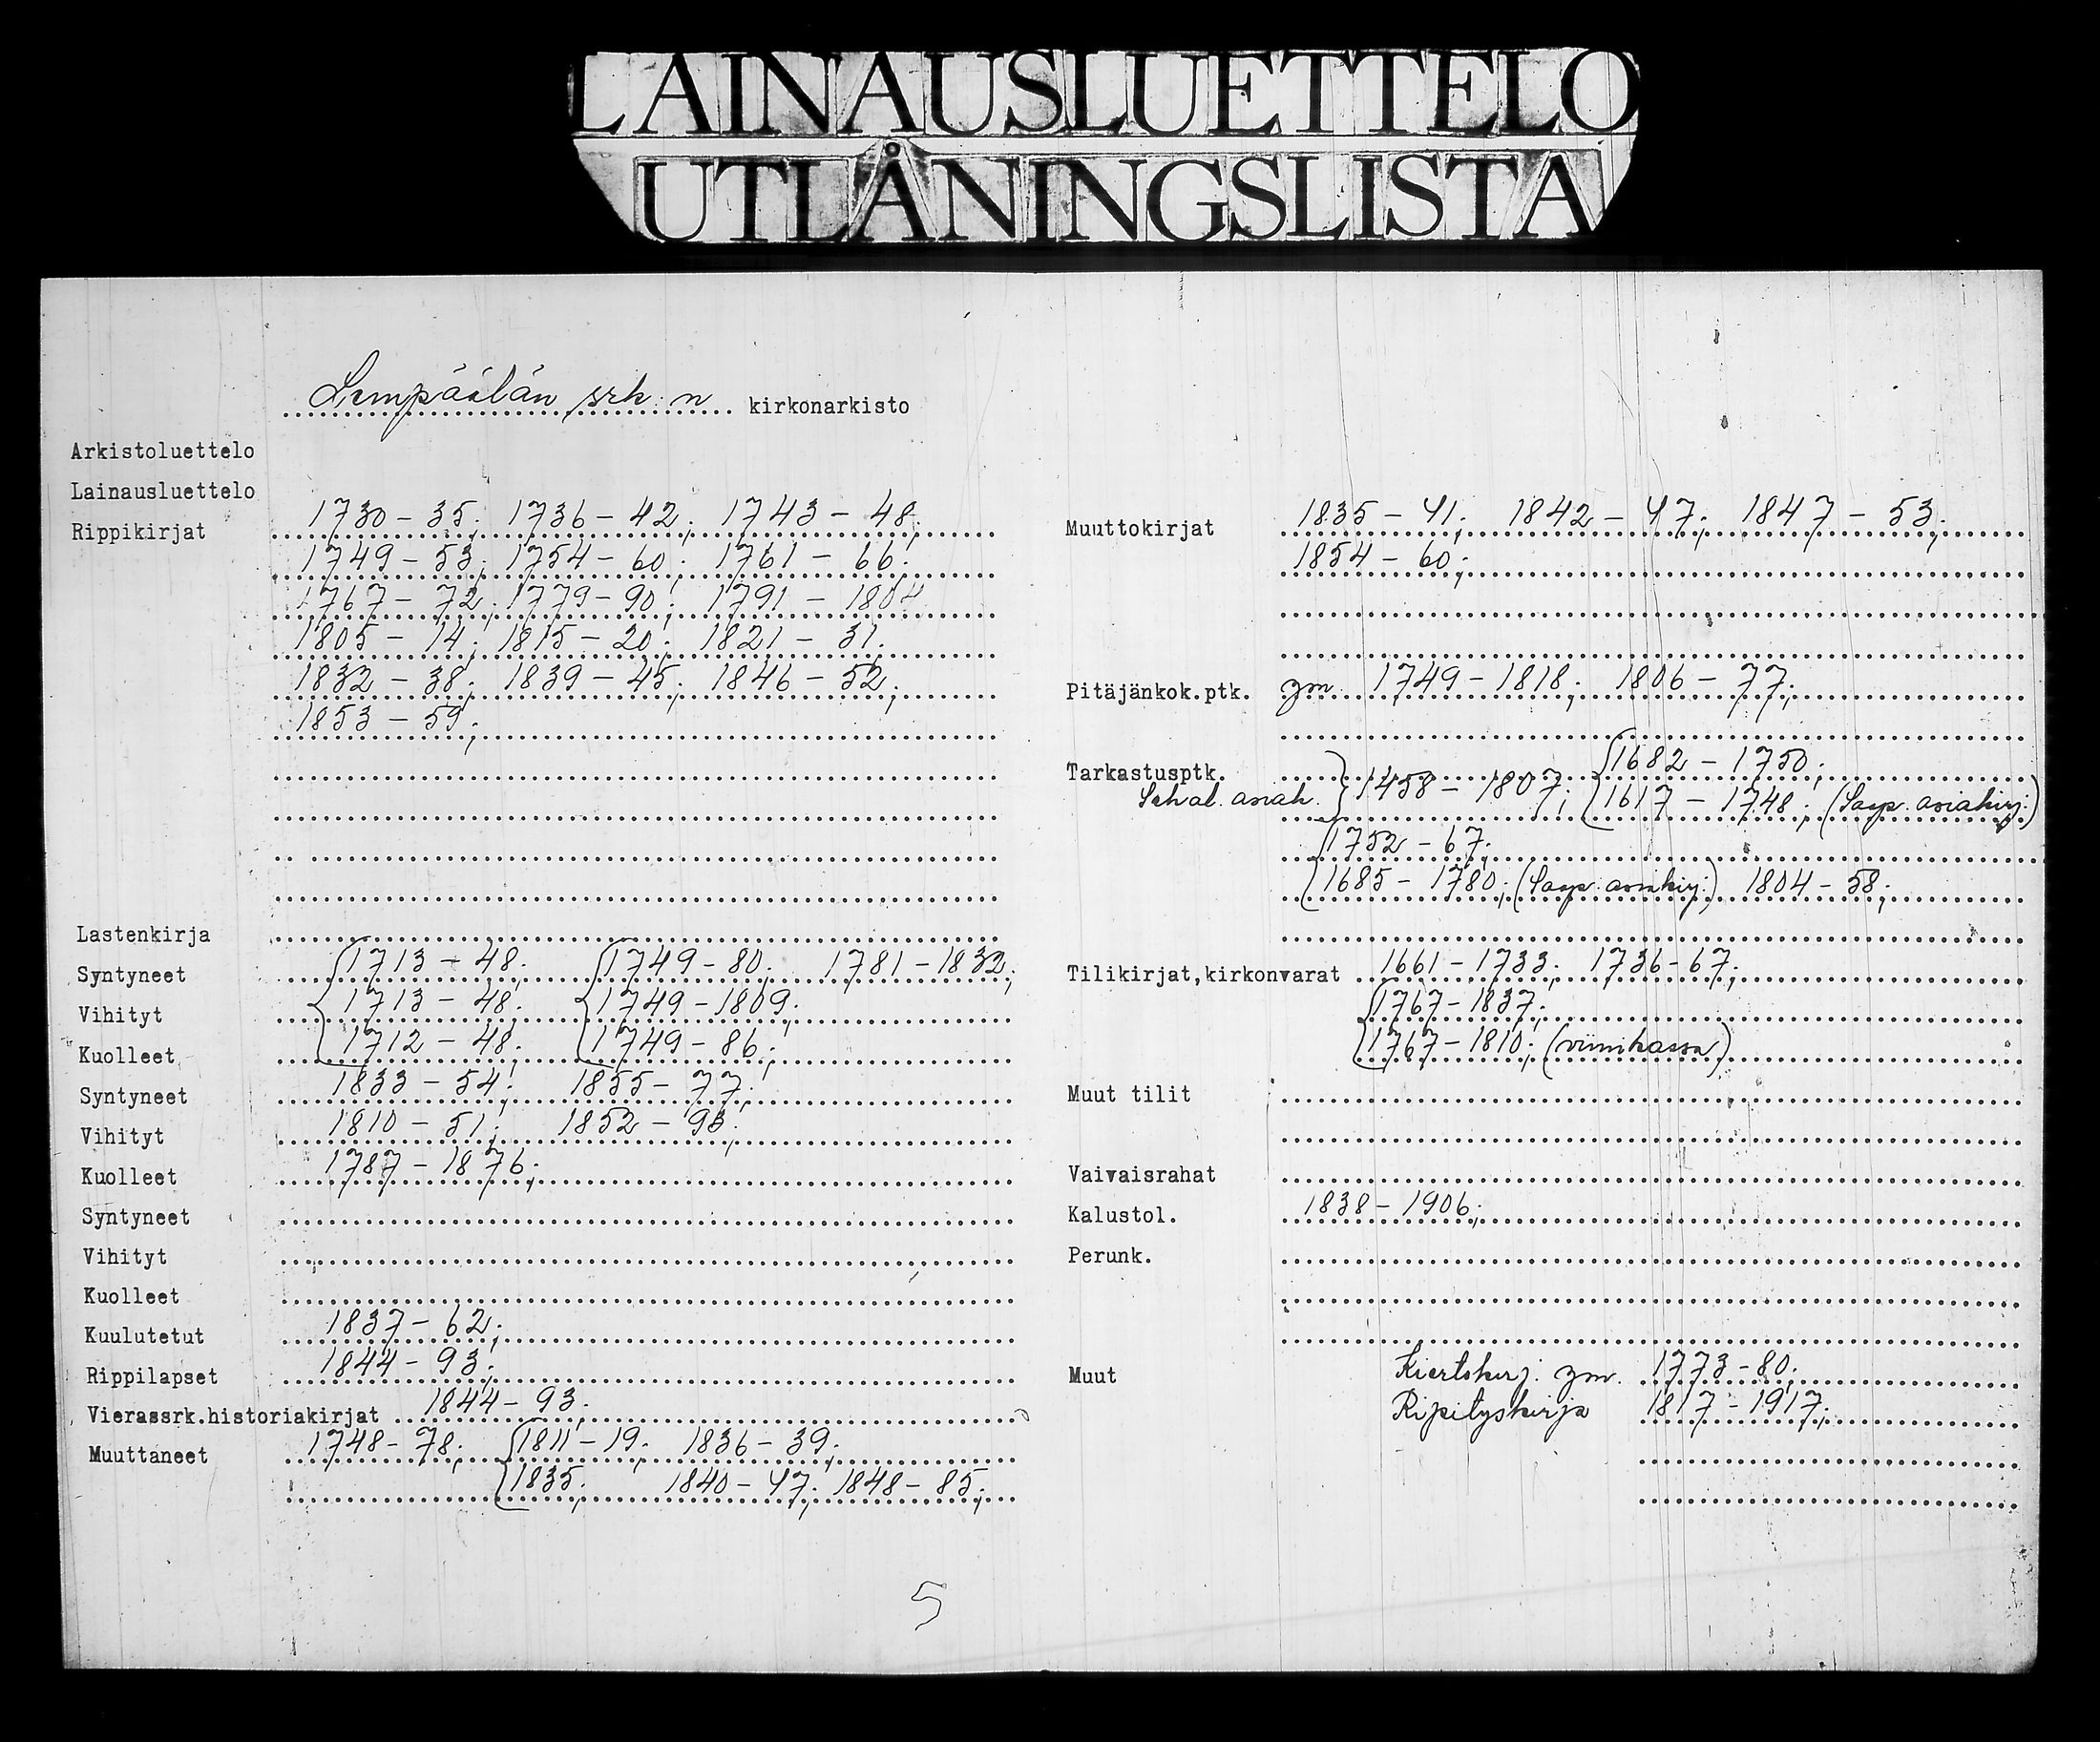 LAINAUSLUETTELO
UTLÅNINGSLISTA
Lempäälän srk:n kirkonarkisto
Arkistoluettelo
Lainausluettelo
Rippikirjat 1730-35; 1736-42; 1743-48;
1749-53; 1754-60; 1761-66;
1767-72; 1779-90; 1791-1804
1805-14; 1815-20; 1821-31;
1832-38; 1839-45; 1846-52;
1853-59;
Lastenkirja
Syntyneet 1713-48; 1749-80; 1781-1832;
Vihityt 1713-48; 1749-1809;
Kuolleet 1712-48; 1749-86;
Syntyneet 1833-54; 1855-77;
Vihityt 1810-51; 1852-93;
Kuolleet 1787-1876;
Syntyneet
Vihityt
Kuolleet
Kuulutetut 1837-62;
Rippilapset 1844-93;
Vierassrk.historiakirjat 1844-93;
Muuttaneet 1748-78; 1811-19; 1836-39;
1835; 1840-47; 1848-85;
5
Muuttokirjat 1835-41; 1842-47; 1847-53;
1854-60;
Pitäjänkok.ptk. ym 1749-1818; 1806-77;
Tarkastusptk. 1682-1750;
1458-1807; 1617-1748; (Saap. asiakirj.)
1752-67;
1685-1780; (Saap. asiakirj.) 1804-58;
Tilikirjat,kirkonvarat 1661-1733; 1736-67;
1767-1837;
1767-1810; (viinikassa)
Muut tilit
Vaivaisrahat
Kalustol. 1838-1906;
Perunk.
Muut Kiertokirj. ym. 1773-80;
Ripityskirja 1817-1917;